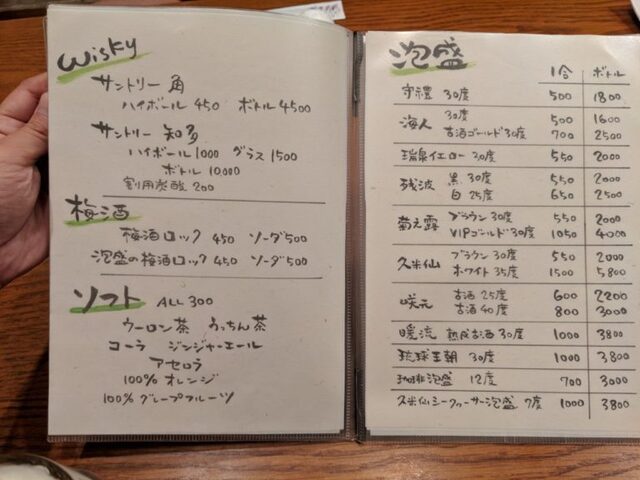 Wisky
サントリー 角
ハイボール 450 ボトル 4500
サントリー 知多
ハイボール 1000 グラス 1500
ボトル 10,000
割用炭酸 200
梅酒
梅酒ロック 450 ソーダ 500
泡盛の梅酒ロック 450 ソーダ 500
ソフト ALL 300
ウーロン茶 うっちん茶
コーラ ジンジャーエール
アセロラ
100% オレンジ
100% グレープフルーツ
泡盛
1合 ボトル
守禮 30度 500 1800
海人 30度 500 1600
古酒ゴールド 30度 700 2500
瑞泉イエロー 30度 550 2000
残波 黒 30度 550 2000
白 25度 650 2500
菊之露 ブラウン 30度 550 2000
VIPゴールド 30度 1050 4000
久米仙 ブラウン 30度 550 2000
ホワイト 35度 1500 5,800
咲元 古酒 25度 600 2200
古酒 40度 800 3000
暖流 熟成古酒 30度 1000 3800
琉球王朝 30度 1000 3,800
珈琲泡盛 12度 700 3000
久米仙シークヮーサー泡盛 7度 1000 3800